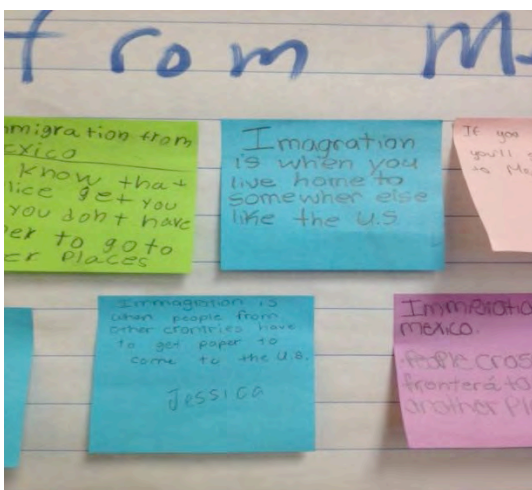 from M
mmigration from
exico
know that
lice get you
you don't have
er to go to
er places
Imagration
is when you
live home to
somewher else
like the U.S
If you
you'll
to Me
Immagestion is
when people from
other crontries have
to get paper to
come to the U.S.
Jessica
Immigratio
mexico.
·People cros
frontera to
another Pl